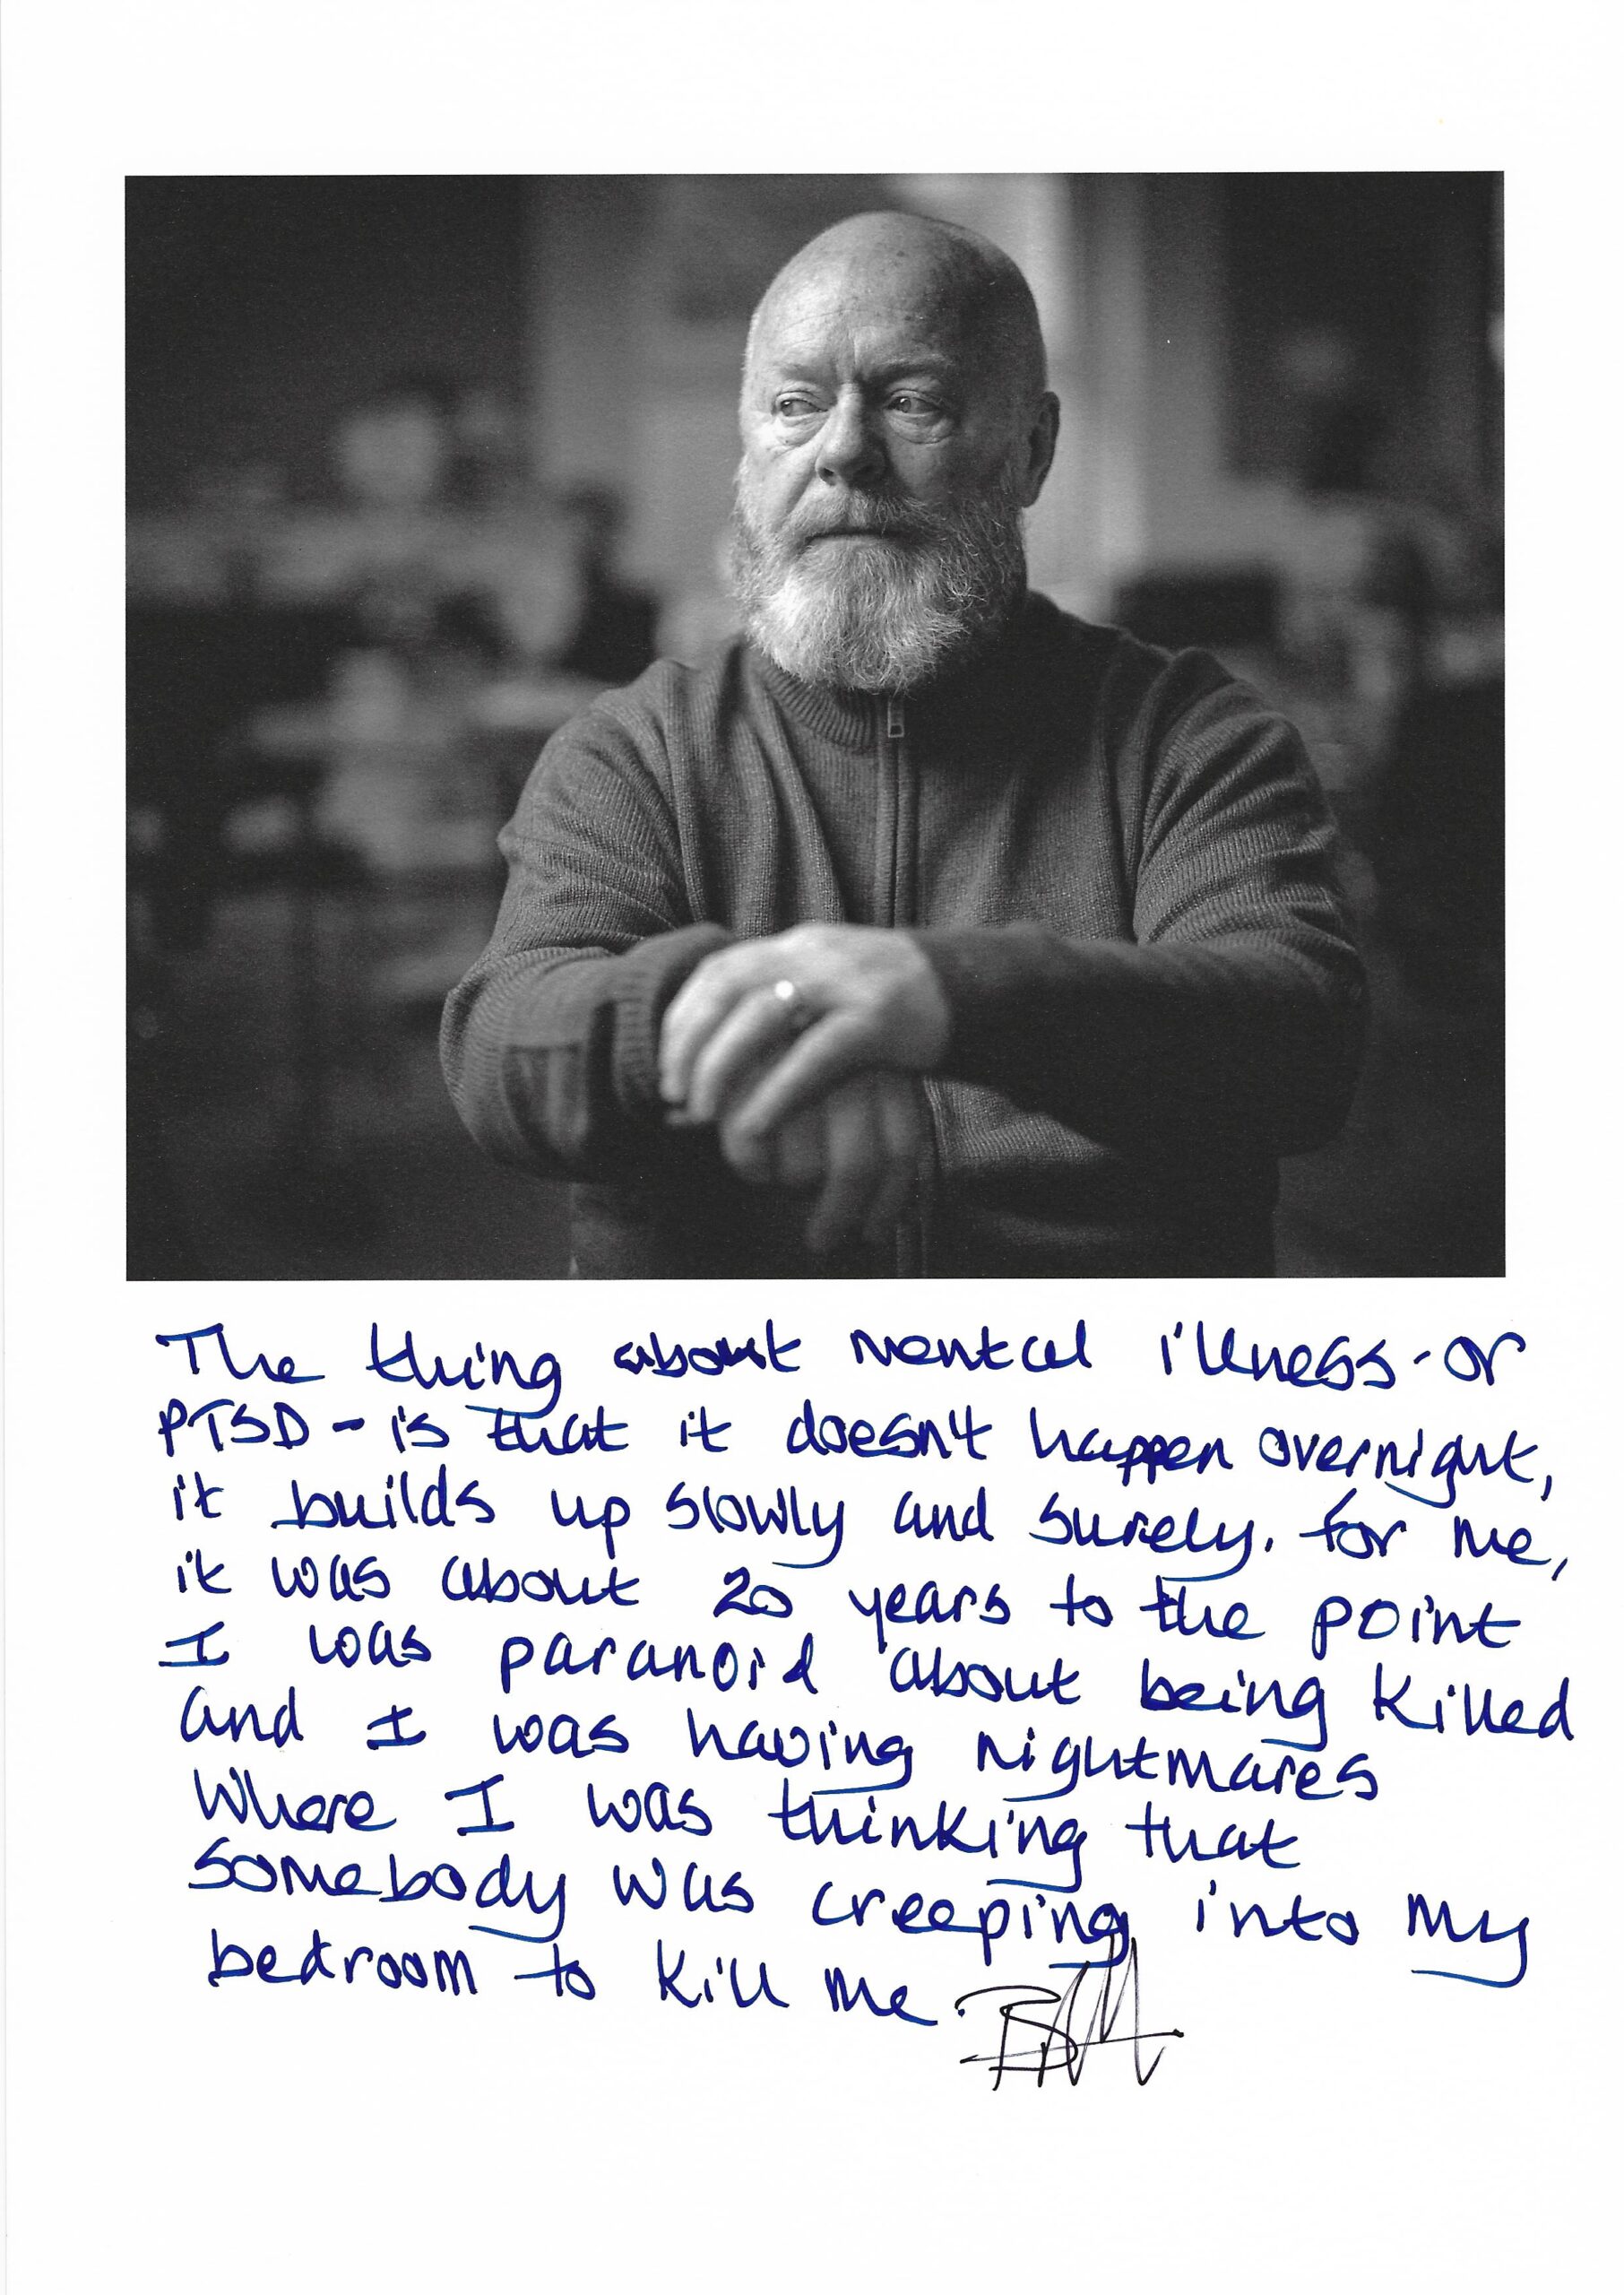 The thing about mental illness - or
PTSD - is that it doesn't happen overnight,
it builds up slowly and surely. for me,
it was about 20 years to the point
I was paranoid about being killed
and I was having nightmares
where I was thinking that
somebody was creeping into my
bedroom to kill me.